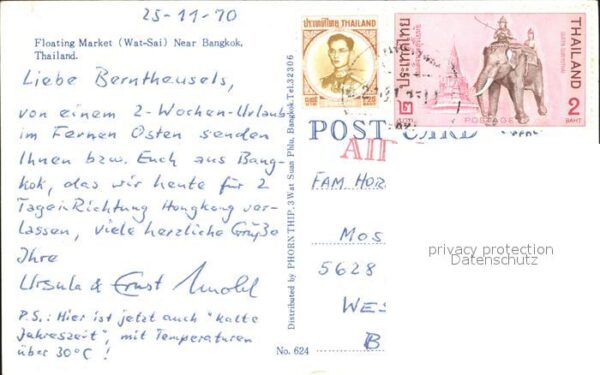 25-11-70
Floating Market (Wat-Sai) Near Bangkok,
Thailand.
Liebe Berntheusels,
von einem 2-Wochen-Urlaub
im Fernen Osten senden
Ihnen bzw. Euch aus Bang-
kok, das wir heute für 2
Tage in Richtung Hongkong ver-
lassen, viele herzliche Grüße
Ihre
Ursula & Ernst
P.S.: Hier ist jetzt auch "kalte
Jahreszeit", mit Temperaturen
über 30°C!
Distributed by PHORN THIP, 3 Wat Suan Phlu, Bangkok, Tel. 32306
No. 624
ประเทศไทย THAILAND
ประเทศไทย
THAILAND
POSTAGE
2
BAHT
POST CARD
AIR
FAM HOR
MOS
5628
WES
B
privacy protection
Datenschutz